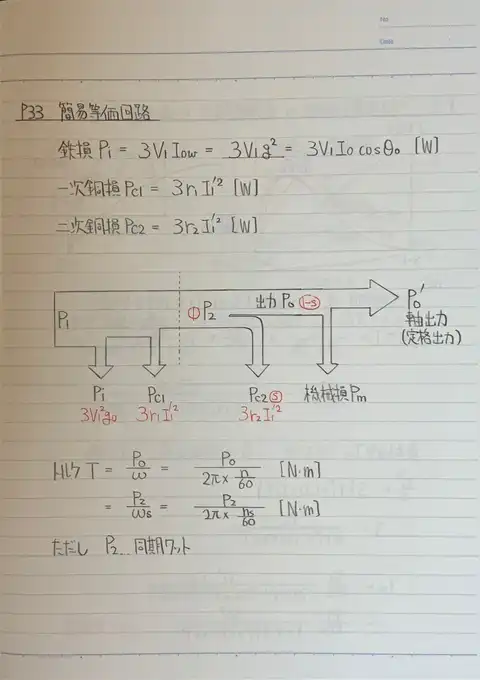 No.
Date
P33 簡易等価回路
鉄損 Pi = 3V₁I₀w = 3V₁g² = 3V₁I₀cosθ₀ [W]
一次銅損 Pc1 = 3r₁I₁'² [W]
二次銅損 Pc2 = 3r₂I₁'² [W]
P₁ ①P₂ 出力 P₀ (1-s) P₀'
軸出力
(定格出力)
Pi Pc1 Pc2 ⓢ 機械損 Pm
3V₁²g₀ 3r₁I₁'² 3r₂I₁'²
トルク T = P₀/ω = P₀/(2π× n/60) [N·m]
= P₂/ωs = P₂/(2π× ns/60) [N·m]
ただし P₂… 同期ワット